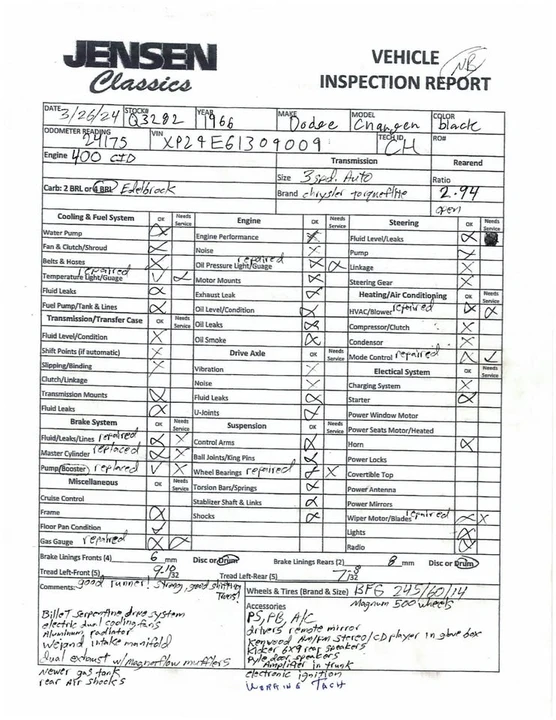 JENSEN
Classics
VEHICLE
INSPECTION REPORT
NB
DATE 3/26/24 STOCK# Q3282 YEAR 1966 MAKE Dodge MODEL Charger COLOR black
ODOMETER READING 29175 VIN XP29E61309009 TECH ID CH RO#
Engine 400 CID Transmission Rearend
Size 3 spd. Auto Ratio
Carb: 2 BRL or 4 BRL Edelbrock Brand chrysler torqueflite 2.94
open
Cooling & Fuel System OK Needs Service Engine OK Needs Service Steering OK Needs Service
Water Pump Engine Performance Fluid Level/Leaks
Fan & Clutch/Shroud Noise Pump
Belts & Hoses Oil Pressure Light/Guage repaired Linkage
Temperature Light/Guage repaired Motor Mounts Steering Gear
Fluid Leaks Exhaust Leak Heating/Air Conditioning OK Needs Service
Fuel Pump/Tank & Lines Oil Level/Condition HVAC/Blower repaired
Transmission/Transfer Case OK Needs Service Oil Leaks Compressor/Clutch
Fluid Level/Condition Oil Smoke Condensor
Shift Points (if automatic) Drive Axle OK Needs Service Mode Control repaired
Slipping/Binding Vibration Electical System OK Needs Service
Clutch/Linkage Noise Charging System
Transmission Mounts Fluid Leaks Starter
Fluid Leaks U-Joints Power Window Motor
Brake System OK Needs Service Suspension OK Needs Service Power Seats Motor/Heated
Fluid/Leaks/Lines repaired Control Arms Horn
Master Cylinder replaced Ball Joints/King Pins Power Locks
Pump/Booster replaced Wheel Bearings repaired Covertible Top
Miscellaneous OK Needs Service Torsion Bars/Springs Power Antenna
Cruise Control Stablizer Shaft & Links Power Mirrors
Frame Shocks Wiper Motor/Blades repaired
Floor Pan Condition Lights
Gas Gauge repaired Radio
Brake Linings Fronts (4) 6 mm Disc or Drum Brake Linings Rears (2) 8 mm Disc or Drum
Tread Left-Front (5) 9.10/32 Tread Left-Rear (5) 7-8/32
Comments: good runner! Strong, good shifting Trans! Wheels & Tires (Brand & Size) BFG 245/60/14
Magnum 500 wheels
Accessories
Billet serpentine drive system PS, PB, A/C
electric dual cooling fans drivers remote mirror
Aluminum radiator Kenwood AM/FM stereo/CD player in glove box
Weiand intake manifold Kicker 6x9 rear speakers
Dual exhaust w/Magnaflow mufflers Pyle door speakers
Amplifier in trunk
Newer gas tank electronic ignition
rear Air shocks WORKING TACH